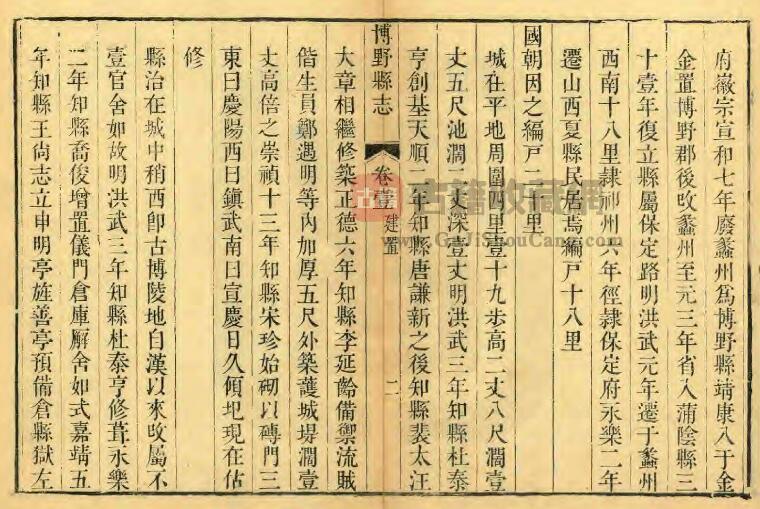 府徽宗宣和七年廢蠡州爲博野縣靖康入于金
金置博野郡後攺蠡州至元三年省入蒲陰縣三
十壹年復立縣屬保定路明洪武元年遷于蠡州
西南十八里隸祁州六年徑隸保定府永樂二年
遷山西夏縣民居焉編戸十八里
國朝因之編戸二十里
城在平地周圍四里壹十九步高二丈八尺濶壹
丈五尺池濶二丈深壹丈明洪武三年知縣杜泰
亨創基天順二年知縣唐謙新之後知縣裴太汪
博野縣志
卷壹 建置
二
大章相繼修築正德六年知縣李延齡備禦流賊
偕生員鄭遇明等內加厚五尺外築護城堤濶壹
丈高倍之崇禎十三年知縣宋珍始砌以磚門三
東曰慶陽西曰鎭武南曰宣慶日久傾圮現在估
修
縣治在城中稍西卽古博陵地自漢以來攺屬不
壹官舍如故明洪武三年知縣杜泰亨修葺永樂
二年知縣喬俊增置儀門倉庫廨舍如式嘉靖五
年知縣王尙志立申明亭旌善亭預備倉縣獄左
古籍收藏網
www.GuJiShouCang.com